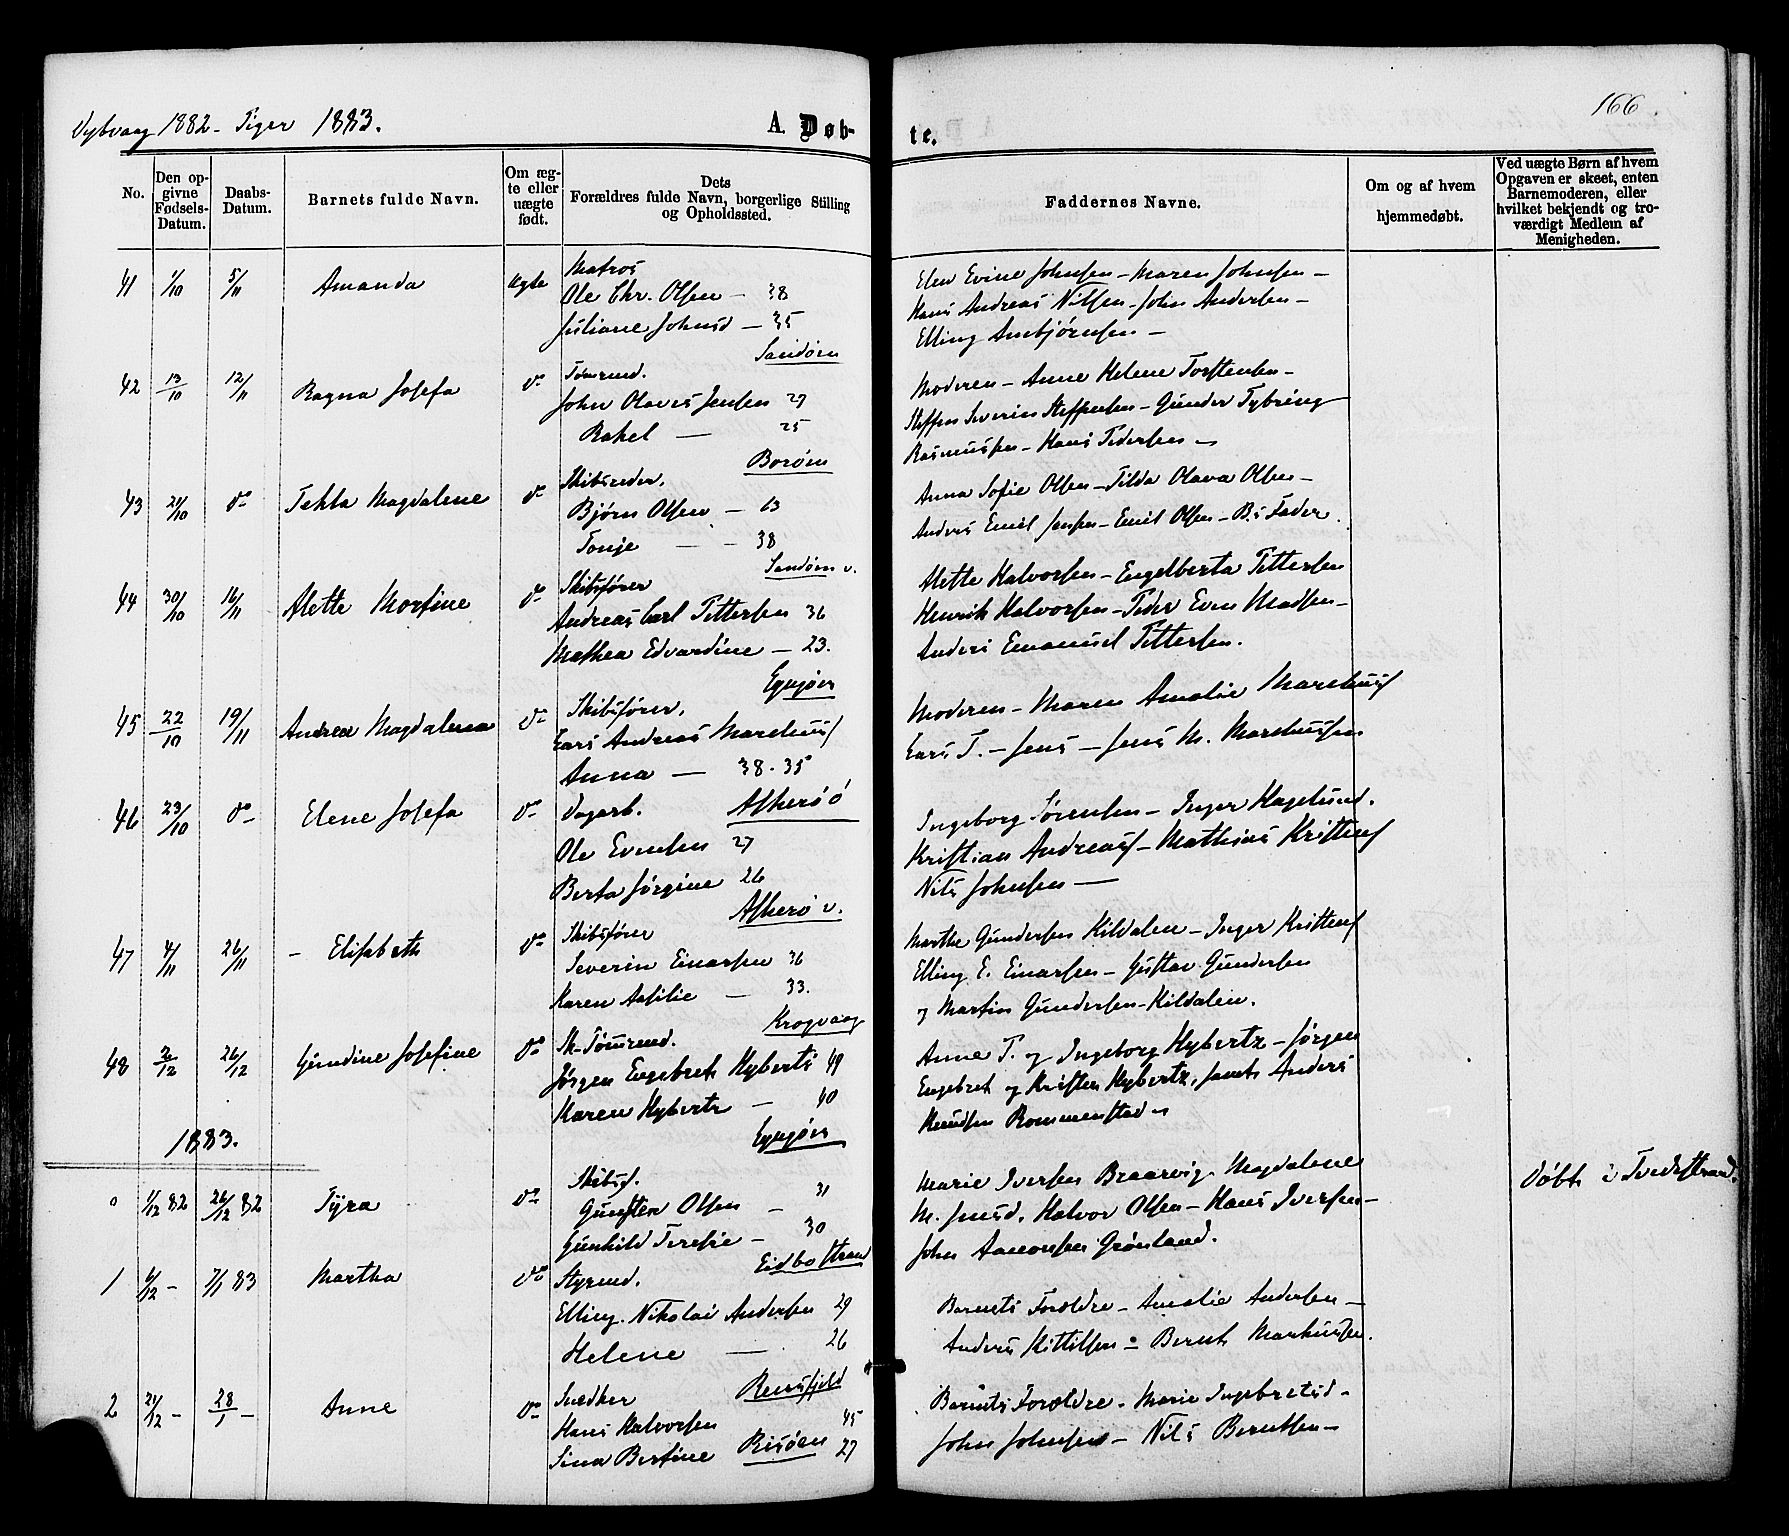 Dybvaag 1882 - Piger 1883.
A. Døb-
te.
166.
No.
Den op-
givne
Fødsels-
Datum.
Daabs-
Datum.
Barnets fulde Navn.
Om æg-
te eller
uægte
født.
Dets
Forældres fulde Navn, borgerlige Stilling
og Opholdssted.
Faddernes Navne.
Om og af hvem
hjemmedøbt.
Ved uægte Børn af hvem
Opgaven er skeet, enten
Barnemoderen, eller
hvilket bekjendt og tro-
værdigt Medlem af
Menigheden.
41 1/10 5/11 Amanda ægte Matros
Ole Chr. Olsen - 38
Juliane Johnsd - 35
Sandøen
Elen Evine Johnsen - Maren Johnsen -
Hans Andreas Nilsen - John Andersen -
Elling Ansbjørnsen -
42 13/10 12/11 Ragna Josefa do Tømrmd.
John Olaves Jensen 27
Rakel - 25
Borøen
Moderen - Anne Helene Torstensen -
Steffen Severin Steffensen - Gunder Tybring
Rasmussen - Hans Pedersen -
43 21/10 do Tekla Magdalene do Skibsreder.
Bjørn Olsen - 63
Tonje - - 38
Sandøen v.
Anna Sofie Olsen - Tilda Olava Olsen -
Anders Emil Jensen - Emil Olsen - B.s Fader.
44 30/10 16/11 Alette Morfine do Skibsfører
Andreas Carl Pettersen 36
Mathea Edvardine - 23.
Egvjøen
Alette Halvorsen - Engelberta Pettersen
Henrik Halvorsen - Peder Even Madsen -
Anders Emanuel Pettersen.
45 22/10 19/11 Andrea Magdalena do Skibsfører.
Lars Andreas Marchuss
Anna - 38 - 35
Askerøø
Moderen - Maren Amalie Marchuss
Lars T. - Jens - Jens M. Marchussen
46 23/10 do Elene Josefa do Dagarb.
Ole Evensen 27
Berta Jørgine 26
Askerø v.
Ingeborg Sørensen - Inger Hagelund.
Kristian Andreass - Mathias Kristens
Nils Johnsen -
47 4/11 26/11 - Elisabeth do Skibsfører
Severin Einarsen 36
Karen Asilie - 33.
Krogvaag
Marthe Gundersen Kildalen - Inger Kristens
Elling E. Einarsen - Gustav Gundersen
og Martin Gundersen - Kildalen.
48 2/12 26/12 Gundine Josefine do Sk-Tømrmd.
Jørgen Engebret Hyberts 49
Karen Hybertz - 40
Egvjøen
Anne T. og Ingeborg Hybertz - Jørgen
Engebret og Kristen Hybertz, samt Anders
Knudsen Rommenstad
1883.
0 1/12 82 26/12 82 Tyra do Skibsf.
Gunsten Olsen - 31
Gunhild Teresie - 30
Eidbostran
Marie Iversen Braarvig - Magdalene
M. Jensd. Halvor Olsen - Hans Iversen -
John Aanonsen Grønland.
Døbt i Tvedestrand.
1 6/12 - 7/1 83 Martha do Styrmd.
Elling Nikolai Andersen 29
Helene - 26
Reinsfjeld
Barnets Forældre - Amalie Andersen -
Anders Kittilsen - Bernt Markussen.
2 21/12 - 28/1 - Anne do Snedker
Hans Halvorsen 45
Sina Bertine Risøen 27
Barnets Forældre - Marie Ingebretsd -
John Johnsen - Nils Berntsen -